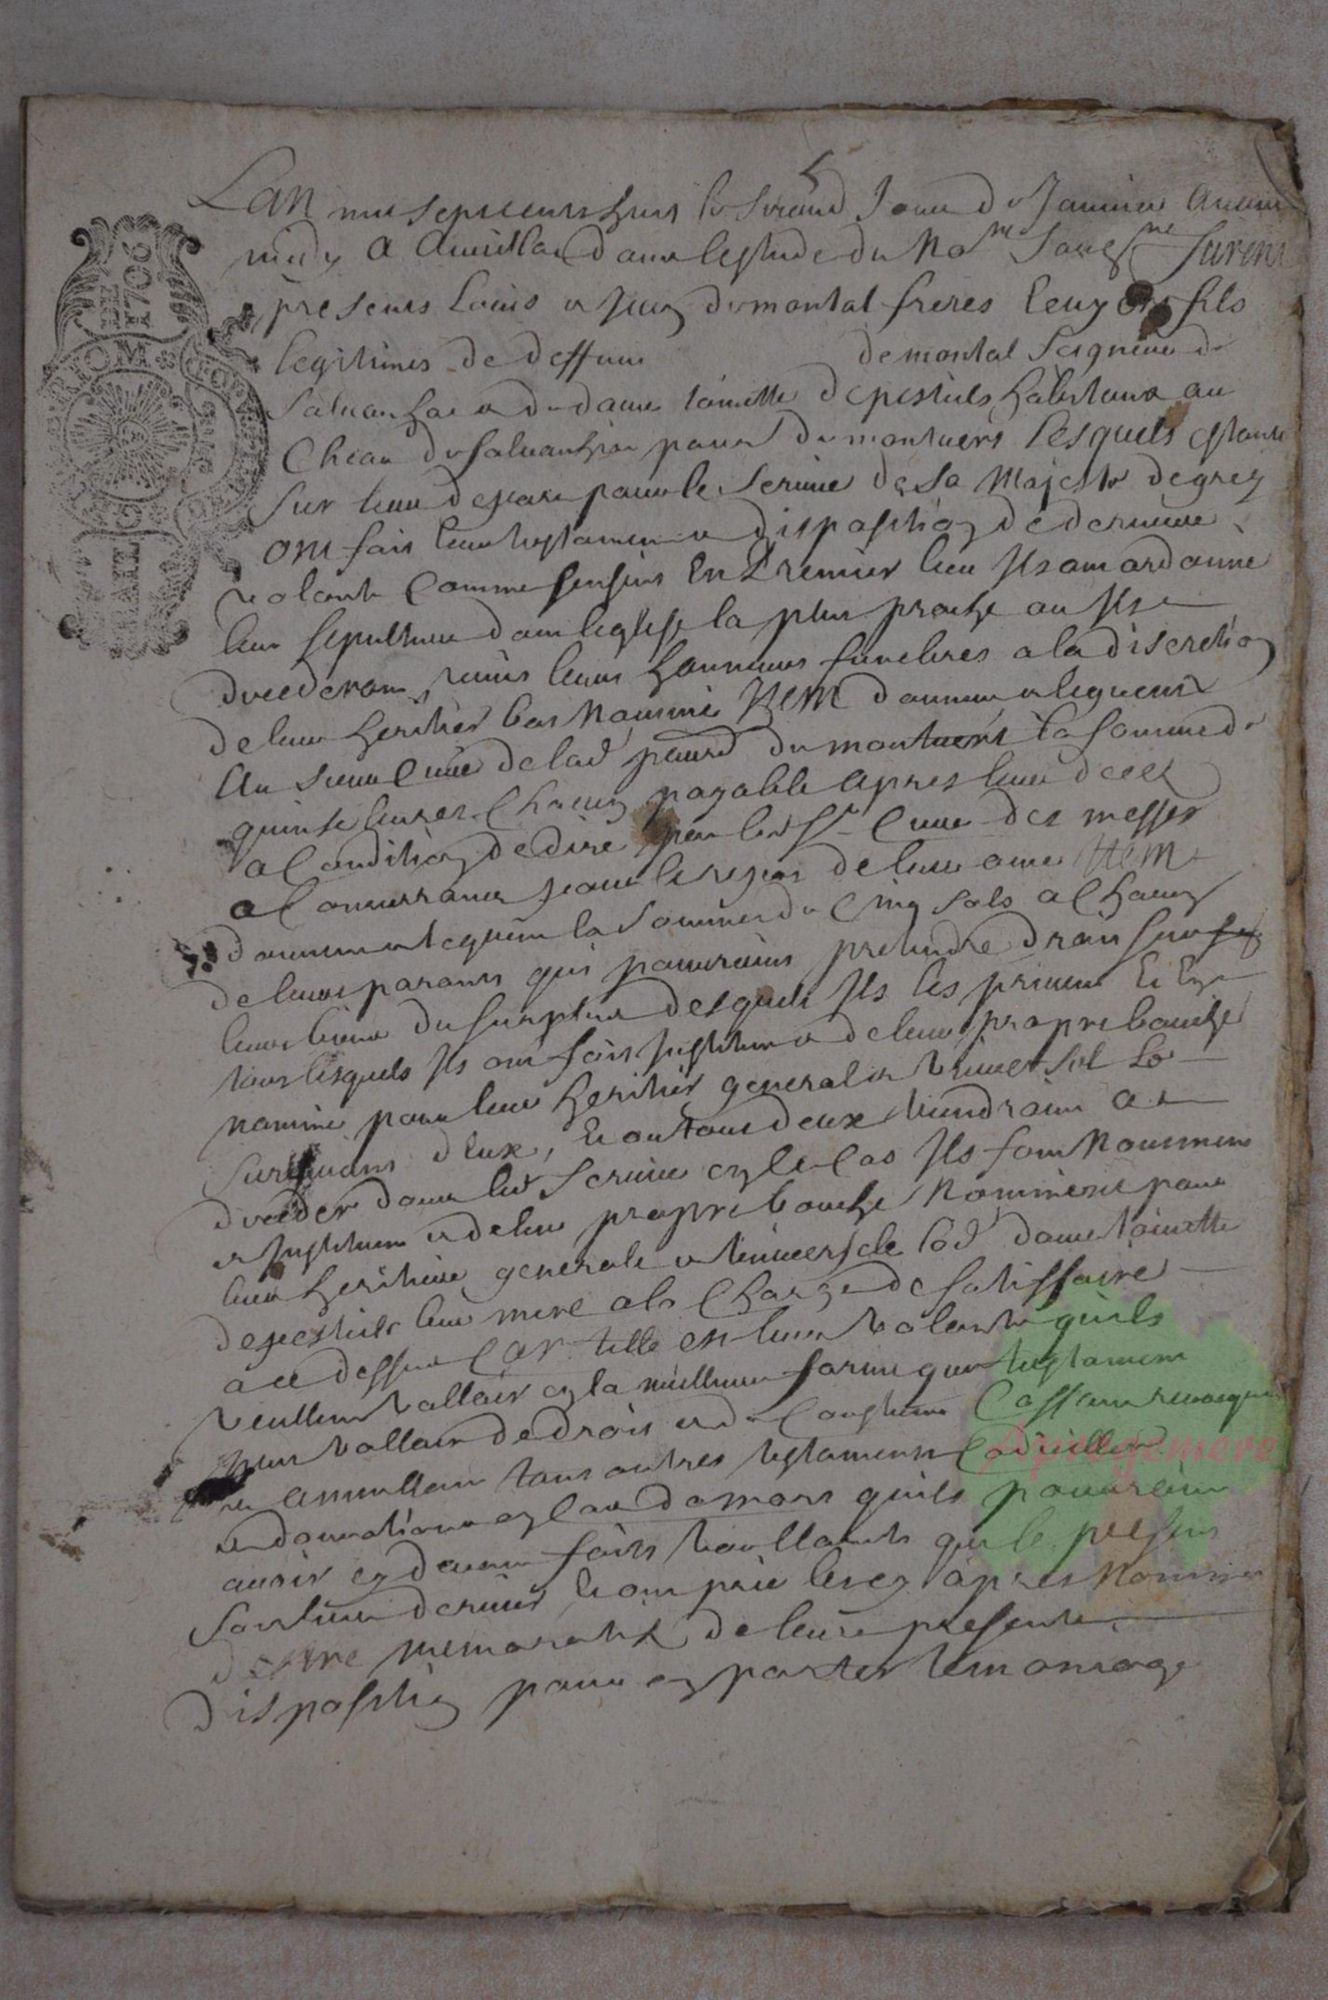 Lan mil sept cents huit le second Jour de Janvier avant
midy a Aurillac dans lestude du No.re Soubs.ne furent
presents Louis et Jean de montal freres Ecuyers fils
legitimes de deffunt de montal Seigneur de
et de dame toinette de pestels habitans au
Cheau de parr de montvert Lesquels estants
sur leur depart pour le service de Sa Majeste de grez
ont fait leur testament et disposition de derniere
volonte Comme sensuit En Premier lieu Ils ont ordonne
leur sepulture dans leglise la plus proche ou Ils
decederont, leurs honneurs funebres a la discretion
de leur heritier bas Nommé ITEM donnent et leguent
Au sieur Curé de lad parr de montvert la somme de
quinse livres Chacun payable apres leur deces
a Condition de dire par led Sr Curé des messes
a Concurrance pour le repos de leur ame ITEM
donnent et leguent la somme de Cinq sols a Chacun
de leurs parants qui pourroient pretendre droit sur
leurs biens du surplus desquels Ils les privent Et En
tous lesquels Ils ont fait Institué et de leur propre bouche
nommé pour leur heritier general et universel Le
survivant deux, Et ou tous deux viendroint a
deceder dans led service en ce Cas Ils font Nomment
et Instituent et de leur propre bouche Nomment pour
leur heritiere generale et universelle lad dame toinette
de pestels leur mere a la Charge de satisfaire
a ce dessus Car telle est leur volonte quils
veullent valloir en la meilleure forme que testament
peut valloir de droit et de Coustume Cassent revoquent
et annullent tous autres testaments Codicilles
et donnations en Cas de mort quils pourroint
avoir cy devant faits voullants que le present
sorte dernier Et ont prié les cy apres Nommes
destre memoratifs de leur presente
disposition pour en porter temoniage
GENERALITE DE RIOM
DE 1706
Apregemere